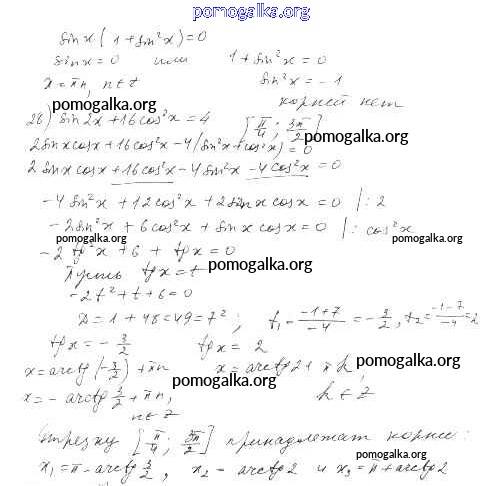 pomogalka.org
sin x (1 + sin²x) = 0
sin x = 0 или 1 + sin²x = 0
x = πn, n∈Z sin²x = -1
корней нет
pomogalka.org
2б) sin 2x + 16 cos²x = 4 [π/4; 3π/2]
2 sin x cos x + 16 cos²x - 4(sin²x + cos²x) = 0
pomogalka.org
2 sin x cos x + 16 cos²x - 4 sin²x - 4 cos²x = 0
-4 sin²x + 12 cos²x + 2 sin x cos x = 0 |:2
-2 sin²x + 6 cos²x + sin x cos x = 0 |: cos²x
pomogalka.org pomogalka.org
-2 tg²x + 6 + tg x = 0
Пусть tg x = t
pomogalka.org
-2t² + t + 6 = 0
D = 1 + 48 = 49 = 7²; t₁ = (-1+7)/-4 = -3/2, t₂ = (-1-7)/-4 = 2
tg x = -3/2 tg x = 2
pomogalka.org
x = arctg(-3/2) + πn x = arctg 2 + πk,
pomogalka.org
x = -arctg 3/2 + πn, k∈Z
n∈Z
Отрезку [π/4; 3π/2] принадлежат корни:
pomogalka.org pomogalka.org
x₁ = π - arctg 3/2, x₂ = arctg 2 и x₃ = π + arctg 2
pomogalka.org